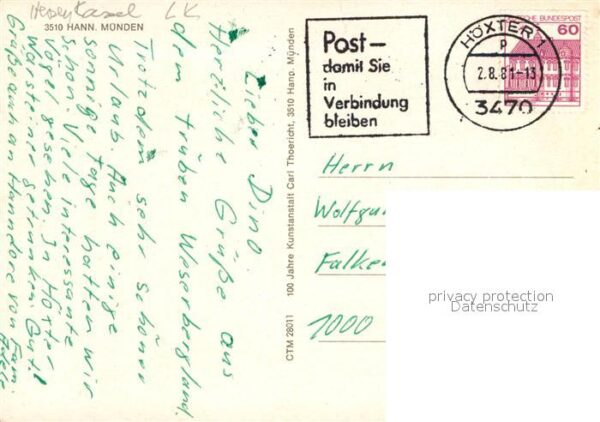 Hessen Kassel LK
3510 HANN. MÜNDEN
Lieber Dino.
Herzliche Grüße aus
dem trüben Weserbergland.
Trotzdem sehr schöner
Urlaub. Auch einige
sonnige Tage hatten wir
schon. Viele interessante
Vögel gesehen. In Höxter
Warsteiner getrunken. Gut!
Grüße auch an Hannelore von Fam.
CTM 28011 100 Jahre Kunstanstalt Carl Thoericht, 3510 Hann. Münden
Post –
damit Sie
in
Verbindung
bleiben
HÖXTER 1
P
2.8.81-13
3470
DEUTSCHE BUNDESPOST
60
Herrn
Wolfgu
Falke
1000
privacy protection
Datenschutz